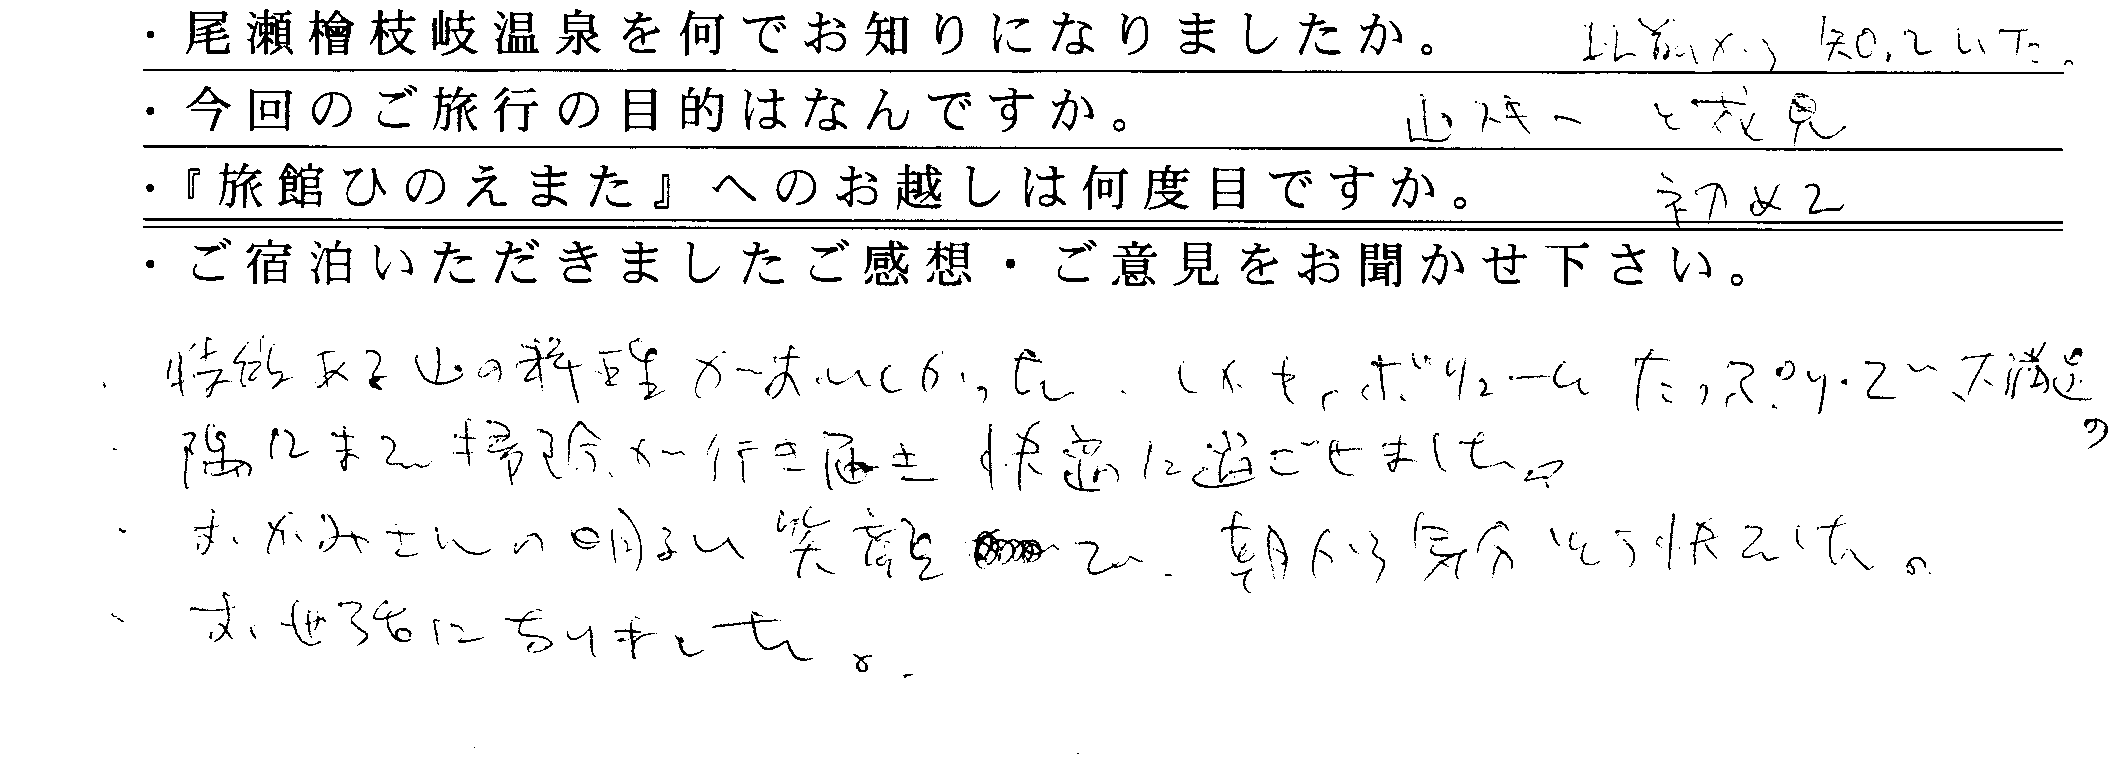 ・尾瀬檜枝岐温泉を何でお知りになりましたか。 以前から知っていた。
・今回のご旅行の目的はなんですか。 山スキーと花見
・『旅館ひのえまた』へのお越しは何度目ですか。 初めて
・ご宿泊いただきましたご感想・ご意見をお聞かせ下さい。
・特徴ある山の料理がおいしかった。しかも、ボリュームたっぷりで大満足。
・隅にまで掃除が行き届き快適に過ごせました。
・おかみさんの明るい笑顔で、朝から気分そう快でした。
・お世話になりました。